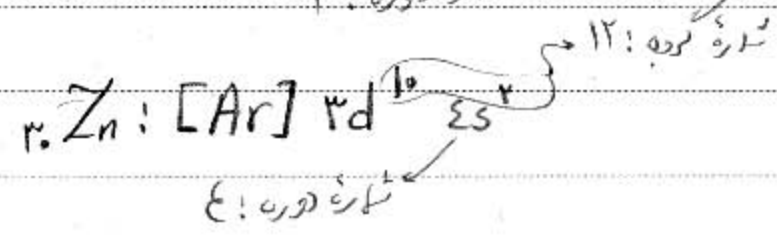 شمارهٔ گروه: ۱۲
۳۰Zn: [Ar] ۳d۱۰ ۴s۲
شمارهٔ دوره: ۴